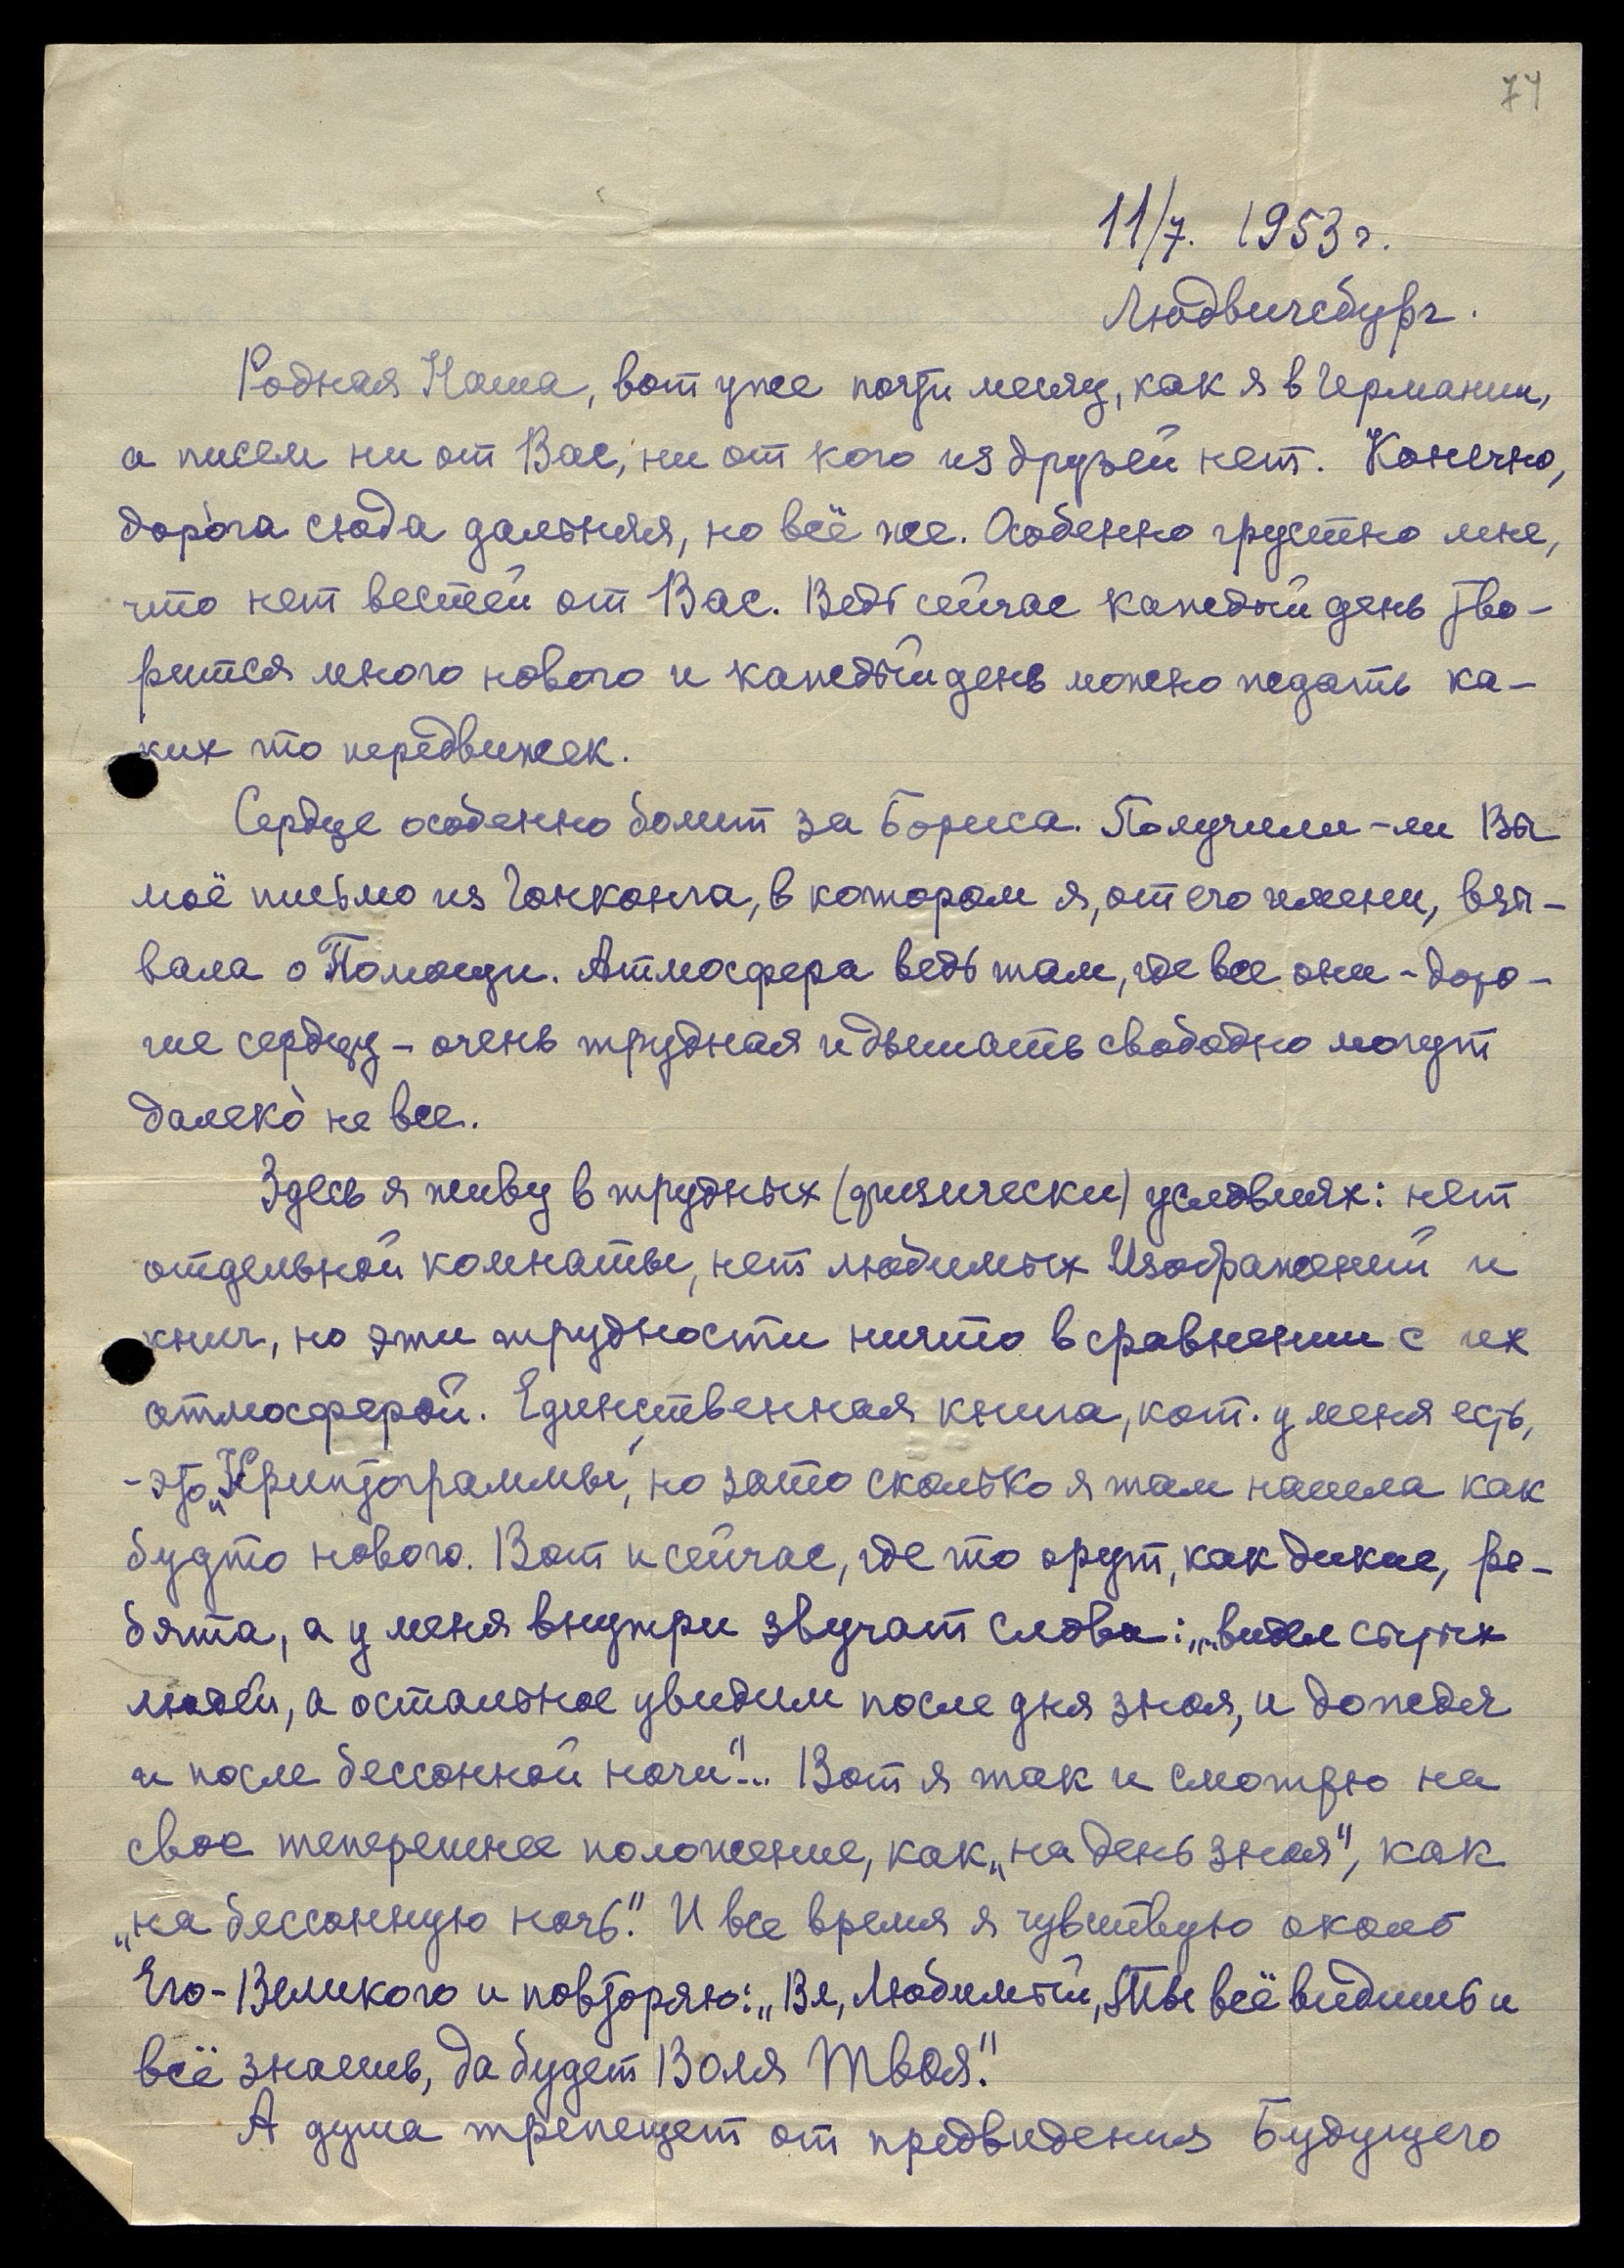 74
11/7. 1953 г.
Людвигсбург.
Родная Наша, вот уже почти месяц, как я в Германии,
а писем ни от Вас, ни от кого из друзей нет. Конечно,
доро́га сюда дальняя, но всё же. Особенно грустно мне,
что нет вестей от Вас. Ведь сейчас каждый день тво-
рится много нового и каждый день можно ждать ка-
ких то передвижек.
Сердце особенно болит за Бориса. Получили-ли Вы
моё письмо из Гонконга, в котором я, от его имени, взы-
вала о Помощи. Атмосфера ведь там, где все они - доро-
гие сердцу - очень трудная и дышать свободно могут
далеко̀ не все.
Здесь я живу в трудных (физически) условиях: нет
отдельной комнаты, нет любимых Изображений и
книг, но эти трудности ничто в сравнении с их
атмосферой. Единственная книга, кот. у меня есть,
- это „Криптограммы", но зато сколько я там нашла как
будто нового. Вот и сейчас, где то орут, как дикие, ре-
бята, а у меня внутри звучат слова: „...видел сытых
людей, а остальное увидим после дня зноя, и дождя
и после бессонной ночи"... Вот я так и смотрю на
свое теперешнее положение, как „на день зноя", как
„на бессонную ночь". И все время я чувствую около
Его-Великого и повторяю: „Вл, Любимый, Ты всё видишь и
всё знаешь, да будет Воля Твоя".
А душа трепещет от предвидения Будущего